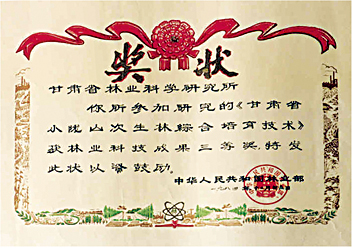 奖状
甘肃省林业科学研究所
你所参加研究的《甘肃省
小陇山次生林综合培育技术》
获林业科技成果三等奖，特发
此状以资鼓励。
中华人民共和国林业部